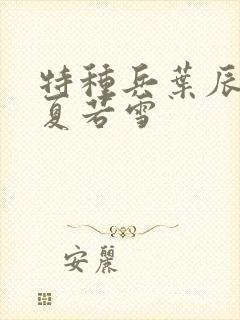 特種兵葉辰
夏若雪
安麗